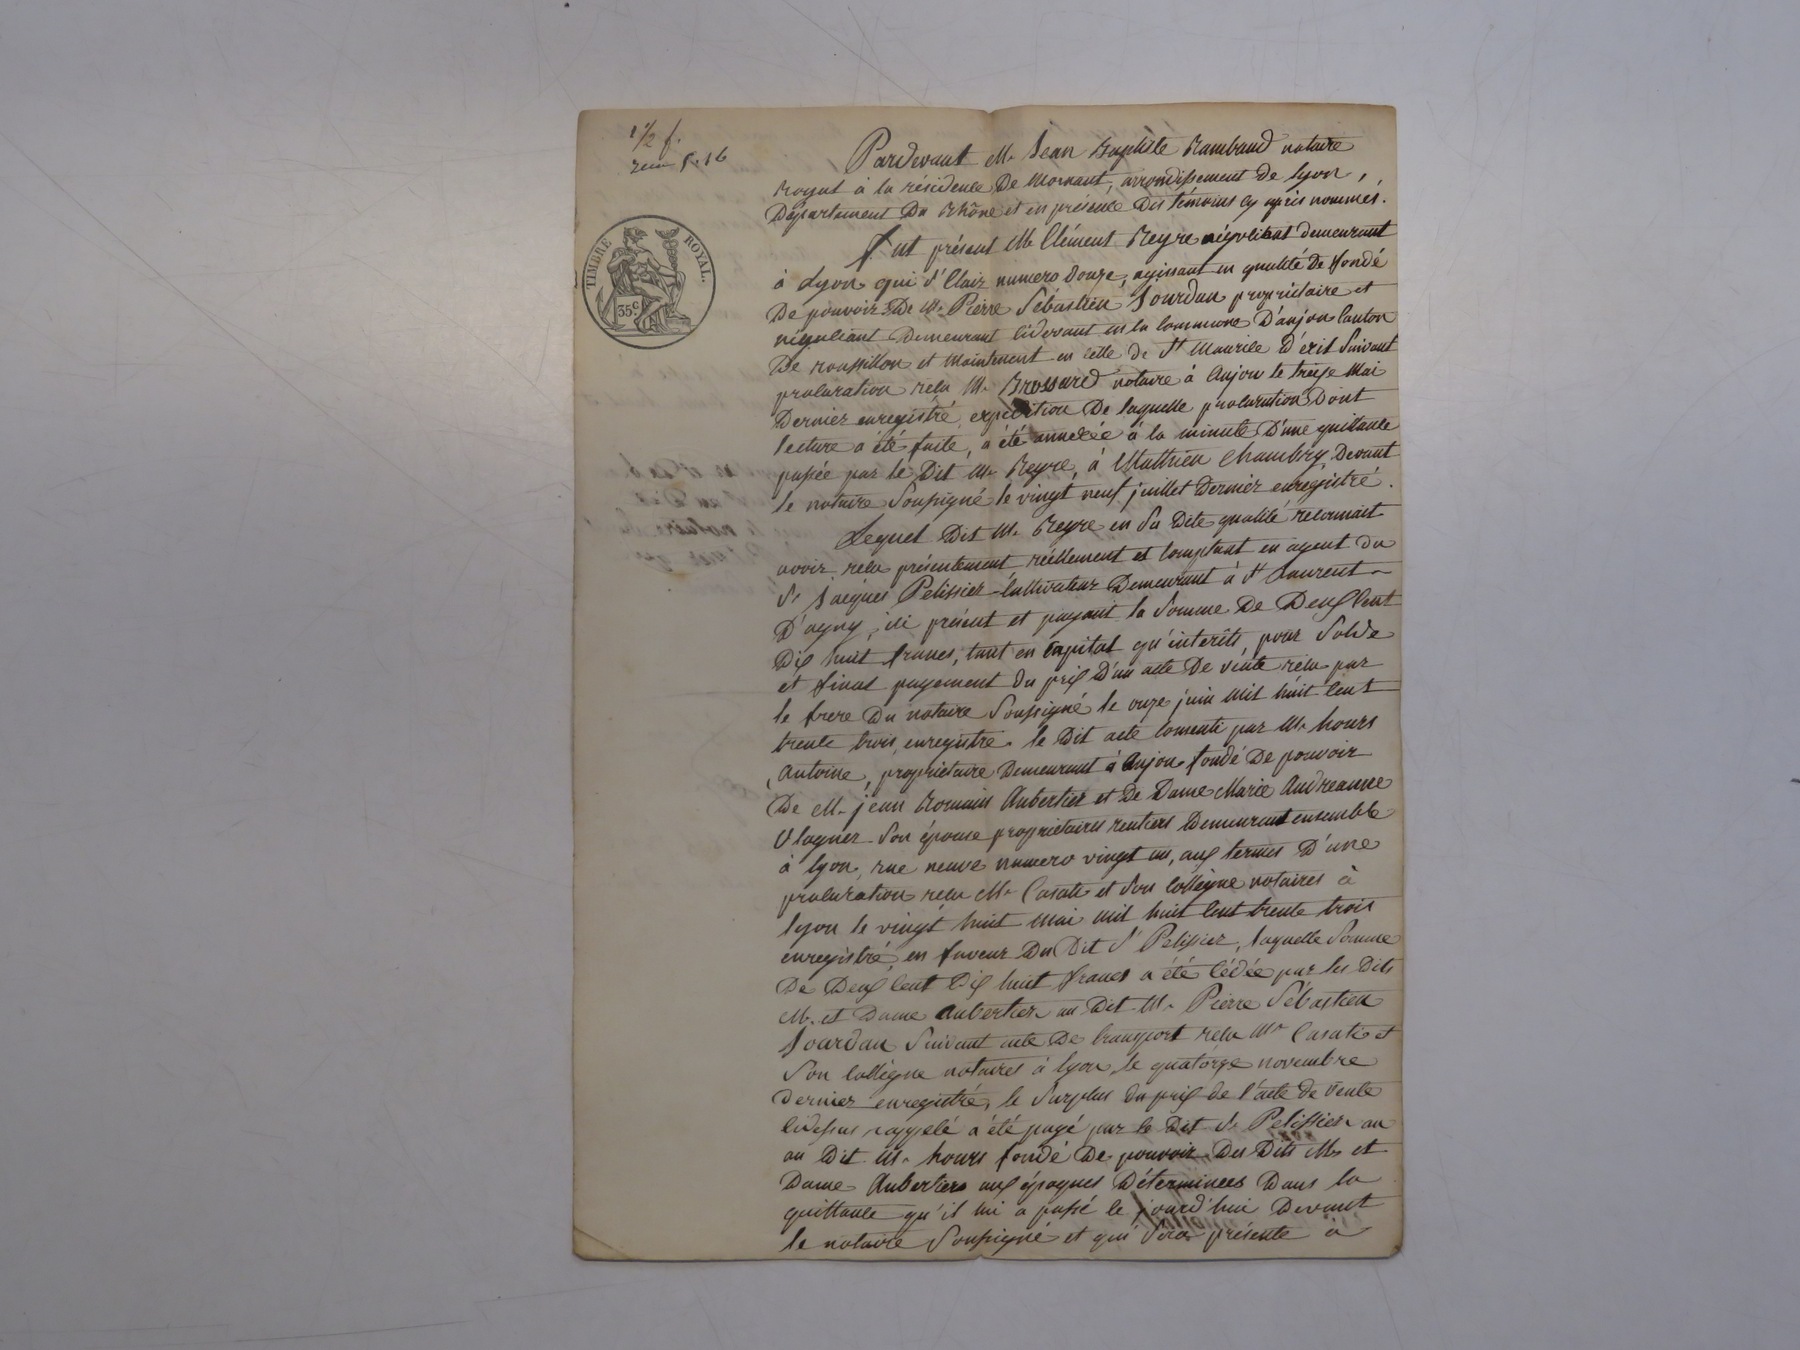 1 1/2 f.
TIMBRE ROYAL.
35 c.
Pardevant Me Jean Baptiste Rambaud notaire
royal à la résidence De Mornant, arrondissement de Lyon,
Département Du Rhône et en présence Des témoins cy après nommés.
fut présent Mr Clément Reyre négociant demeurant
à Lyon qui St Clair numero Douze, agissant en qualité De fondé
De pouvoir De Mr Pierre Sébastien Jourdan propriétaire et
négociant Demeurant cidevant en la commune D'anjou Canton
De roussillon et maintenant en celle de St Maurice D'exil Suivant
procuration reçu Me Brossard notaire à Anjou le treize Mai
Dernier enregistré, expédition De laquelle procuration Dont
lecture a été faite, a été annexée à la minute D'une quittance
passée par le Dit Mr Reyre, à Matthieu Chambry, Devant
le notaire Soussigné le vingt neuf juillet Dernier enregistré.
Lequel Dit Mr Reyre en Sa Dite qualité reconnait
avoir reçu présentement réellement et comptant en agent du
Sr Jacques Pelissier Cultivateur Demeurant à St Laurent
D'agny, ici présent et payant la Somme De Deux Cent
Dix huit francs, tant en capital qu'interêts, pour Solde
et final payement du prix D'un acte De vente reçu par
le frere Du notaire Soussigné le onze juin mil huit cent
trente trois, enregistré. le Dit acte consenti par Mr hours
Antoine, propriétaire Demeurant à Anjou fondé De pouvoir
De Mr jean Romain Aubertier et De Dame Marie Andreanne
Son épouse propriétaires rentiers Demeurant ensemble
à Lyon, rue neuve numero vingt un, aux termes D'une
procuration reçu Me Casati et Son Collègue notaires à
Lyon le vingt huit Mai mil huit Cent trente trois
enregistré, en faveur Du Dit Sr Pelissier, laquelle Somme
De Deux Cent Dix huit francs a été cédée par les Dits
Mr et Dame Aubertier au Dit Mr Pierre Sébastien
Jourdan Suivant acte De transport reçu Me Casati et
Son Collègue notaires à Lyon le quatorze novembre
Dernier enregistré, le Surplus du prix de l'acte de Vente
cidessus rappelé a été payé par le Dit Sr Pelissier au
au Dit Mr hours fondé De pouvoir Des Dits Mr et
Dame Aubertier aux époques Déterminées Dans la
quittance qu'il lui a passé le jourd'hui Devant
le notaire Soussigné et qui Sera présente à